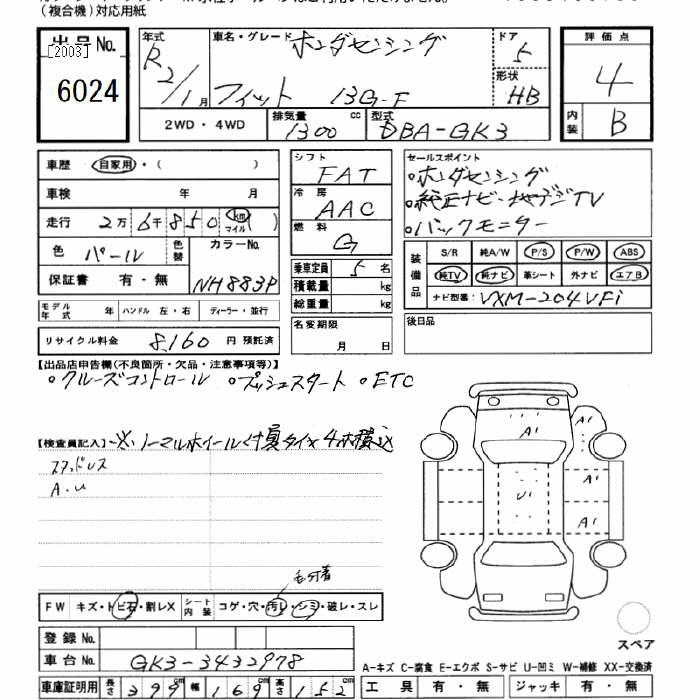 (複合機)対応用紙
出品No.
[2003]
6024
年式
R2/1月
車名・グレード
ホンダセンシング
フィット 13G-F
ドア
5
形状
HB
評価点
4
内装
B
2WD・4WD
排気量
1300
cc
型式
DBA-GK3
車歴
自家用・( )
車検 年 月
走行 2万6千850 km マイル ( )
色 パール
色替
カラーNo.
NH883P
保証書 有・無
モデル年式 年 ハンドル 左・右 ディーラー・並行
リサイクル料金 8,160 円 預託済
シフト
FAT
冷房
AAC
燃料
G
乗車定員 5 名
積載量 kg
総重量 kg
名変期限
月 日
セールスポイント
・ホンダセンシング
・純正ナビ・地デジTV
・バックモニター
装備品
S/R 純A/W P/S P/W ABS
純TV 純ナビ 革シート 外ナビ エアB
ナビ型番: VXM-204VFi
後日品
【出品店申告欄(不良箇所・欠品・注意事項等)】
・クルーズコントロール ・プッシュスタート ・ETC
【検査員記入】 ※ノーマルホイール付夏タイヤ4本積込
スタッドレス
A.U
A1
A1
A1
U1
A1
毛付着
FW キズ・トビ石・割レX
シート内装 コゲ・穴・汚レ・シミ・破レ・スレ
登録No.
車台No. GK3-3432978
車庫証明用 長さ 399cm 幅 169cm 高さ 152cm
スペア
A-キズ C-腐食 E-エクボ S-サビ U-凹ミ W-補修 XX-交換済
工具 有・無 ジャッキ 有・無